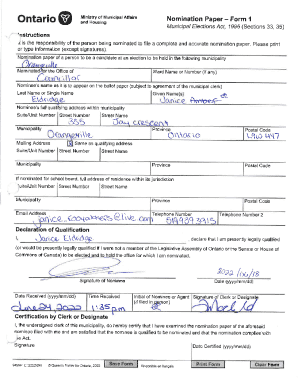 Ontario
Ministry of Municipal Affairs
and Housing
Nomination Paper – Form 1
Municipal Elections Act, 1996 (Sections 33, 35)
Instructions
It is the responsibility of the person being nominated to file a complete and accurate nomination paper. Please print
or type information (except signatures).
Nomination paper of a person to be a candidate at an election to be held in the following municipality
Orangeville
Nominated for the Office of
Ward Name or Number (if any)
Councillor
Nominee's name as it is to appear on the ballot paper (subject to agreement of the municipal clerk)
Last Name or Single Name
Given Name(s)
Eldridge
Janice
Nominee's full qualifying address within municipality
Suite/Unit Number Street Number Street Name
355 Jay crescent
Municipality Province Postal Code
Orangeville Ontario
Mailing Address Same as qualifying address
Suite/Unit Number Street Number Street Name
Municipality Province Postal Code
If nominated for school board, full address of residence within its jurisdiction
Suite/Unit Number Street Number Street Name
Municipality Province Postal Code
Email Address Telephone Number Telephone Number 2
Declaration of Qualification
I, Janice Eldridge , declare that I am presently legally qualified
(or would be presently legally qualified if I were not a member of the Legislative Assembly of Ontario or the Senate or House of
Commons of Canada) to be elected and to hold the office for which I am nominated.
Signature of Nominee Date (yyyy/mm/dd)
Date Received (yyyy/mm/dd) Time Received Initial of Nominee or Agent (if filed in person) Signature of Clerk or Designate
June 24, 2022 1:35pm
Certification by Clerk or Designate
I, the undersigned clerk of this municipality, do hereby certify that I have examined the nomination paper of the aforesaid
nominee filed with me and am satisfied that the nominee is qualified to be nominated and that the nomination complies with
the Act.
Signature Date Certified (yyyy/mm/dd)
Save Form Print Form Clear Form